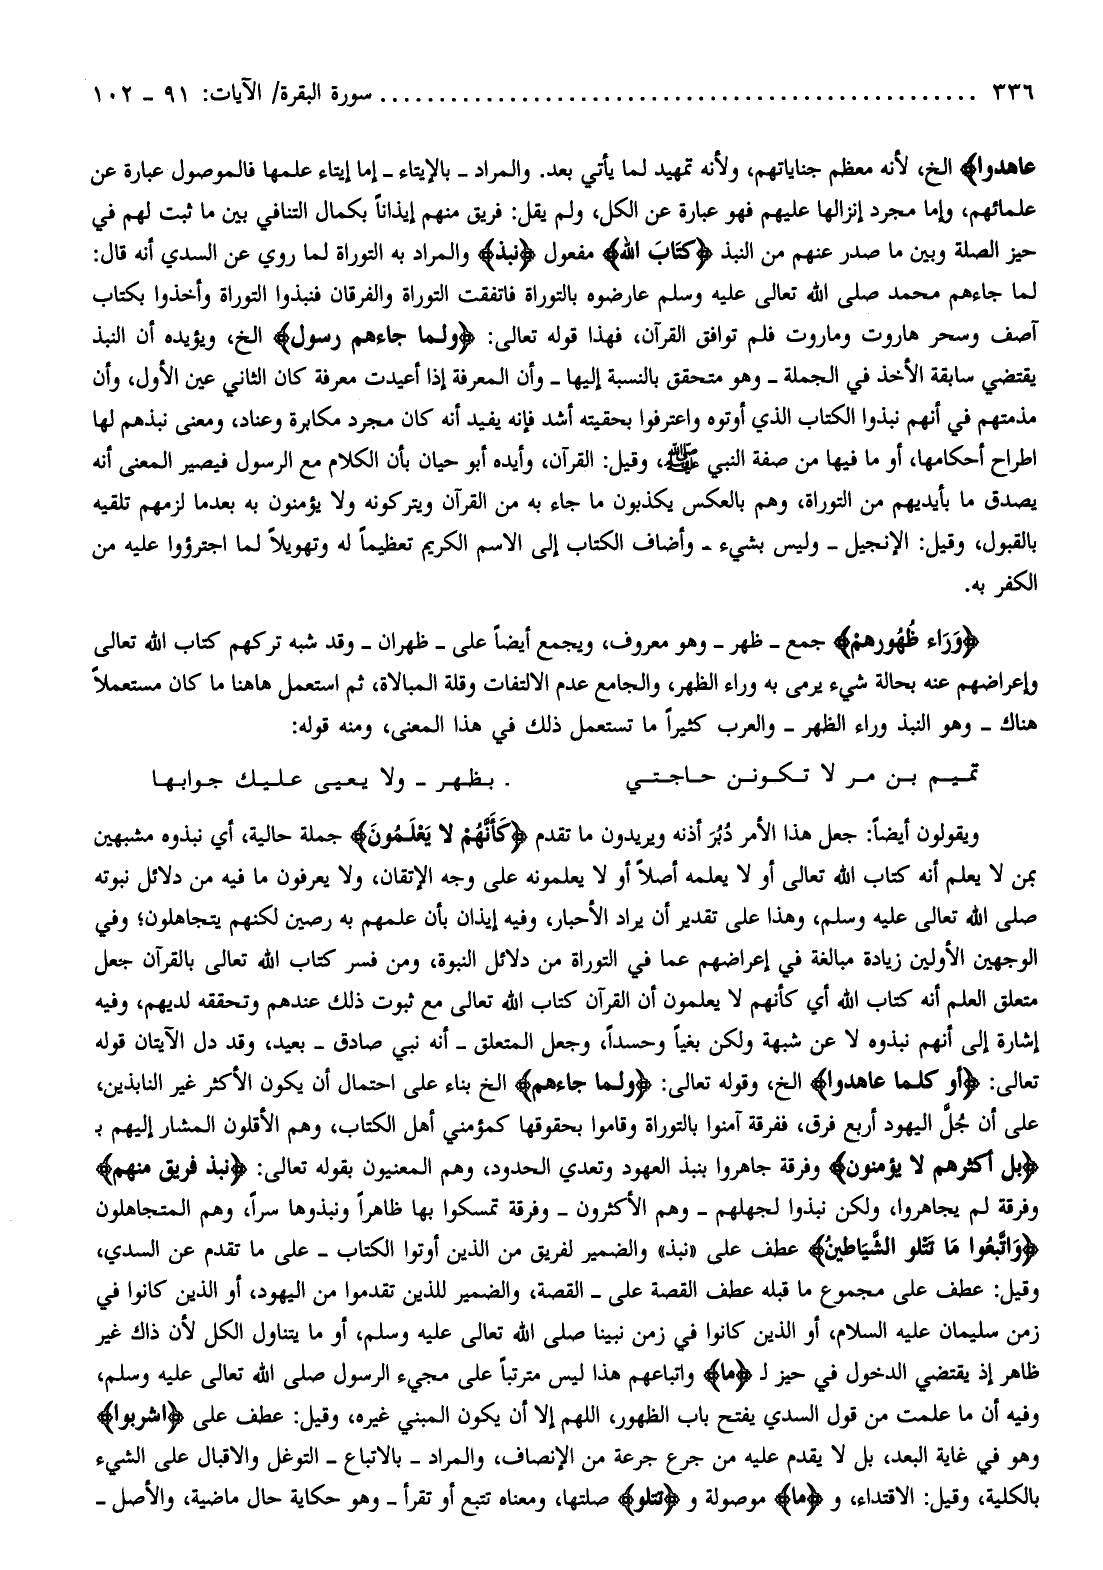 ٣٣٦ ............................................................ سورة البقرة/ الآيات: ٩١ ـ ١٠٢
عاهدوا﴾ الخ، لأنه معظم جناياتهم، ولأنه تمهيد لما يأتي بعد. والمراد ـ بالإيتاء ـ إما إيتاء علمها فالموصول عبارة عن
علمائهم، وإما مجرد إنزالها عليهم فهو عبارة عن الكل، ولم يقل: فريق منهم إيذاناً بكمال التنافي بين ما ثبت لهم في
حيز الصلة وبين ما صدر عنهم من النبذ ﴿كتابَ الله﴾ مفعول ﴿نبذ﴾ والمراد به التوراة لما روي عن السدي أنه قال:
لما جاءهم محمد صلى الله تعالى عليه وسلم عارضوه بالتوراة فاتفقت التوراة والفرقان فنبذوا التوراة وأخذوا بكتاب
آصف وسحر هاروت وماروت فلم توافق القرآن، فهذا قوله تعالى: ﴿ولما جاءهم رسول﴾ الخ، ويؤيده أن النبذ
يقتضي سابقة الأخذ في الجملة ـ وهو متحقق بالنسبة إليها ـ وأن المعرفة إذا أعيدت معرفة كان الثاني عين الأول، وأن
مذمتهم في أنهم نبذوا الكتاب الذي أوتوه واعترفوا بحقيته أشد فإنه يفيد أنه كان مجرد مكابرة وعناد، ومعنى نبذهم لها
اطراح أحكامها، أو ما فيها من صفة النبي ﷺ، وقيل: القرآن، وأيده أبو حيان بأن الكلام مع الرسول فيصير المعنى أنه
يصدق ما بأيديهم من التوراة، وهم بالعكس يكذبون ما جاء به من القرآن ويتركونه ولا يؤمنون به بعدما لزمهم تلقيه
بالقبول، وقيل: الإنجيل ـ وليس بشيء ـ وأضاف الكتاب إلى الاسم الكريم تعظيماً له وتهويلاً لما اجترؤوا عليه من
الكفر به.
﴿وَرَاء ظُهُورهمْ﴾ جمع ـ ظهر ـ وهو معروف، ويجمع أيضاً على ـ ظهران ـ وقد شبه تركهم كتاب الله تعالى
وإعراضهم عنه بحالة شيء يرمى به وراء الظهر، والجامع عدم الالتفات وقلة المبالاة، ثم استعمل هاهنا ما كان مستعملاً
هناك ـ وهو النبذ وراء الظهر ـ والعرب كثيراً ما تستعمل ذلك في هذا المعنى، ومنه قوله:
تميم بن مر لا تكونن حاجتي . بظهر ـ ولا يعيى عليك جوابها
ويقولون أيضاً: جعل هذا الأمر دُبُرَ أذنه ويريدون ما تقدم ﴿كَأَنَّهُمْ لا يَعْلَمُونَ﴾ جملة حالية، أي نبذوه مشبهين
بمن لا يعلم أنه كتاب الله تعالى أو لا يعلمه أصلاً أو لا يعلمونه على وجه الإتقان، ولا يعرفون ما فيه من دلائل نبوته
صلى الله تعالى عليه وسلم، وهذا على تقدير أن يراد الأحبار، وفيه إيذان بأن علمهم به رصين لكنهم يتجاهلون؛ وفي
الوجهين الأولين زيادة مبالغة في إعراضهم عما في التوراة من دلائل النبوة، ومن فسر كتاب الله تعالى بالقرآن جعل
متعلق العلم أنه كتاب الله أي كأنهم لا يعلمون أن القرآن كتاب الله تعالى مع ثبوت ذلك عندهم وتحققه لديهم، وفيه
إشارة إلى أنهم نبذوه لا عن شبهة ولكن بغياً وحسداً، وجعل المتعلق ـ أنه نبي صادق ـ بعيد، وقد دل الآيتان قوله
تعالى: ﴿أو كلما عاهدوا﴾ الخ، وقوله تعالى: ﴿ولما جاءهم﴾ الخ بناء على احتمال أن يكون الأكثر غير النابذين،
على أن جُلَّ اليهود أربع فرق، ففرقة آمنوا بالتوراة وقاموا بحقوقها كمؤمني أهل الكتاب، وهم الأقلون المشار إليهم بـ
﴿بل أكثرهم لا يؤمنون﴾ وفرقة جاهروا بنبذ العهود وتعدي الحدود، وهم المعنيون بقوله تعالى: ﴿نبذ فريق منهم﴾
وفرقة لم يجاهروا، ولكن نبذوا لجهلهم ـ وهم الأكثرون ـ وفرقة تمسكوا بها ظاهراً ونبذوها سراً، وهم المتجاهلون
﴿وَاتَّبعُوا مَا تَتْلو الشَّيَاطينُ﴾ عطف على «نبذ» والضمير لفريق من الذين أوتوا الكتاب ـ على ما تقدم عن السدي،
وقيل: عطف على مجموع ما قبله عطف القصة على ـ القصة، والضمير للذين تقدموا من اليهود، أو الذين كانوا في
زمن سليمان عليه السلام، أو الذين كانوا في زمن نبينا صلى الله تعالى عليه وسلم، أو ما يتناول الكل لأن ذاك غير
ظاهر إذ يقتضي الدخول في حيز لـ ﴿ما﴾ واتباعهم هذا ليس مترتباً على مجيء الرسول صلى الله تعالى عليه وسلم،
وفيه أن ما علمت من قول السدي يفتح باب الظهور، اللهم إلا أن يكون المبني غيره، وقيل: عطف على ﴿اشربوا﴾
وهو في غاية البعد، بل لا يقدم عليه من جرع جرعة من الإنصاف، والمراد ـ بالاتباع ـ التوغل والاقبال على الشيء
بالكلية، وقيل: الاقتداء، و ﴿ما﴾ موصولة و ﴿تتلو﴾ صلتها، ومعناه تتبع أو تقرأ ـ وهو حكاية حال ماضية، والأصل ـ